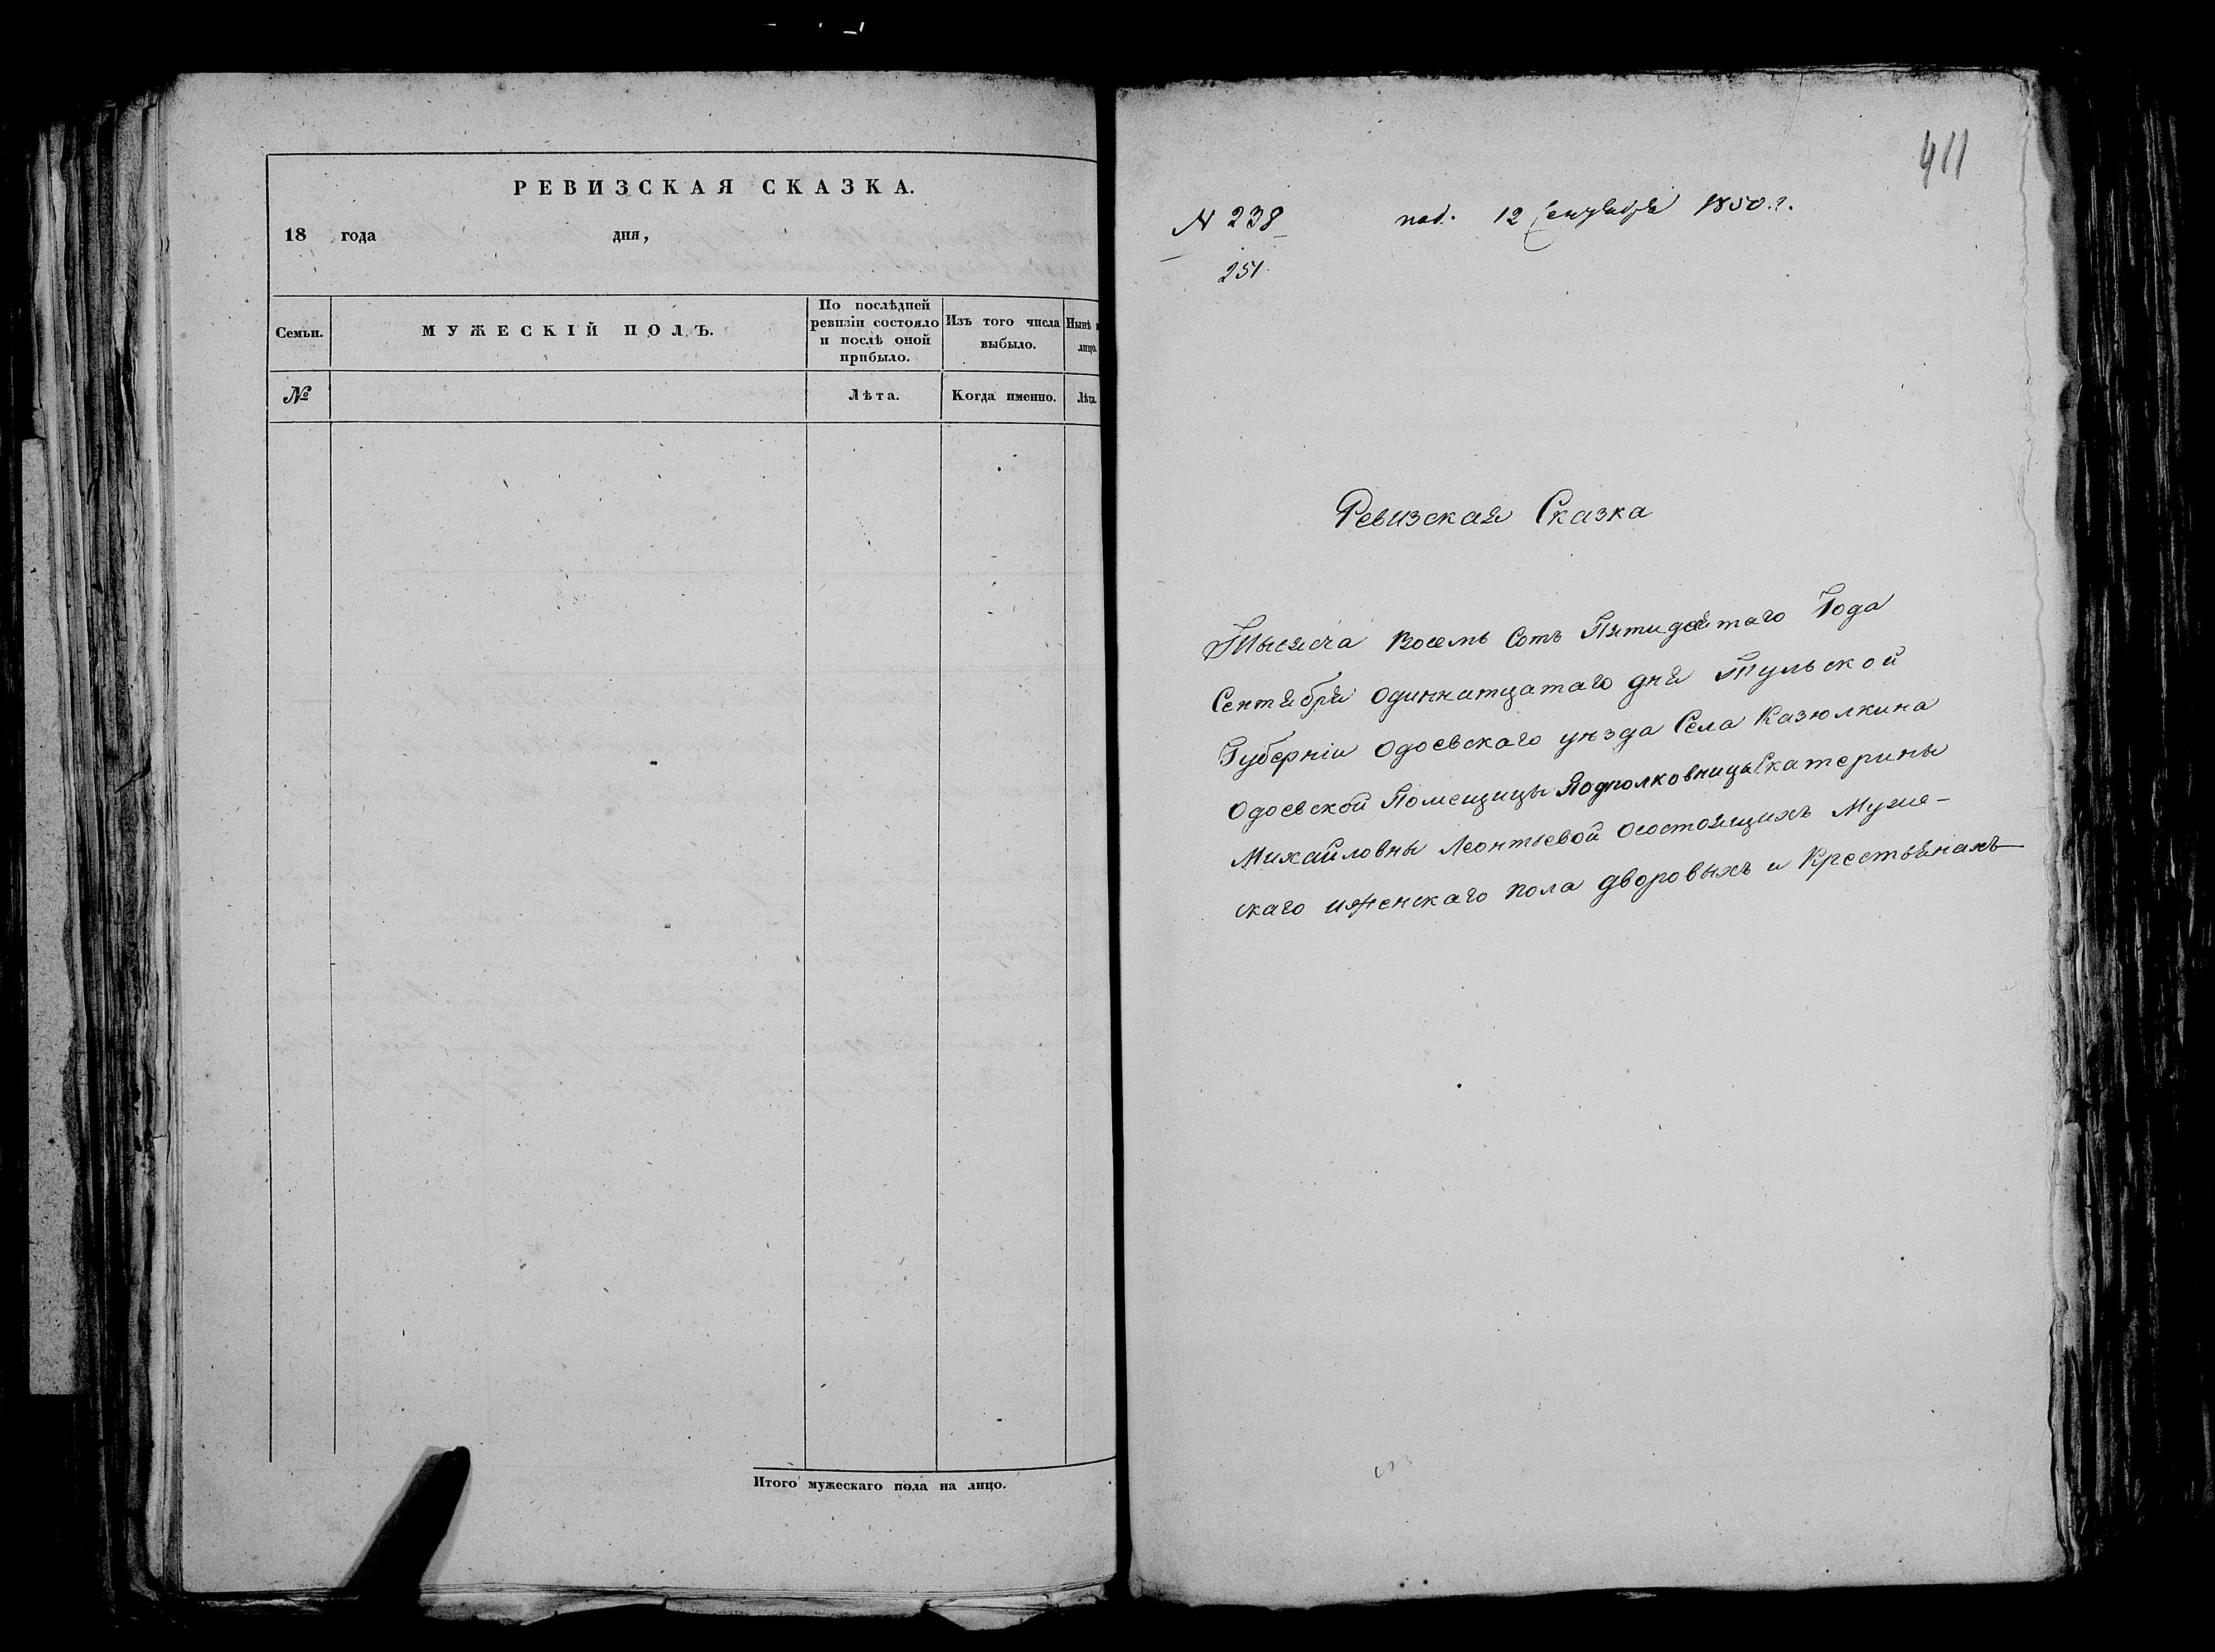 РЕВИЗСКАЯ СКАЗКА.
18 года дня,
Семьи.
МУЖЕСКІЙ ПОЛЪ.
По послѣдней
ревизіи состояло
и послѣ оной
прибыло.
Изъ того числа
выбыло.
Нынѣ
лицо.
№
Лѣта.
Когда именно.
Лѣта.
Итого мужескаго пола на лицо.
411
N 238 под. 12 Сентября 1850.г.
251.
Ревизская Сказка
Тысяча Восемь Сотъ Пятидесятаго Года
Сентября Одиннатцатаго дня Тульской
Губерніи Одоевскаго уѣзда Села Казюлкина
Одоевской Помещицы Подполковницы Екатерины
Михайловны Леонтьевой осостоящихъ Муже-
скаго иженскаго пола дворовыхъ и Крестьянахъ